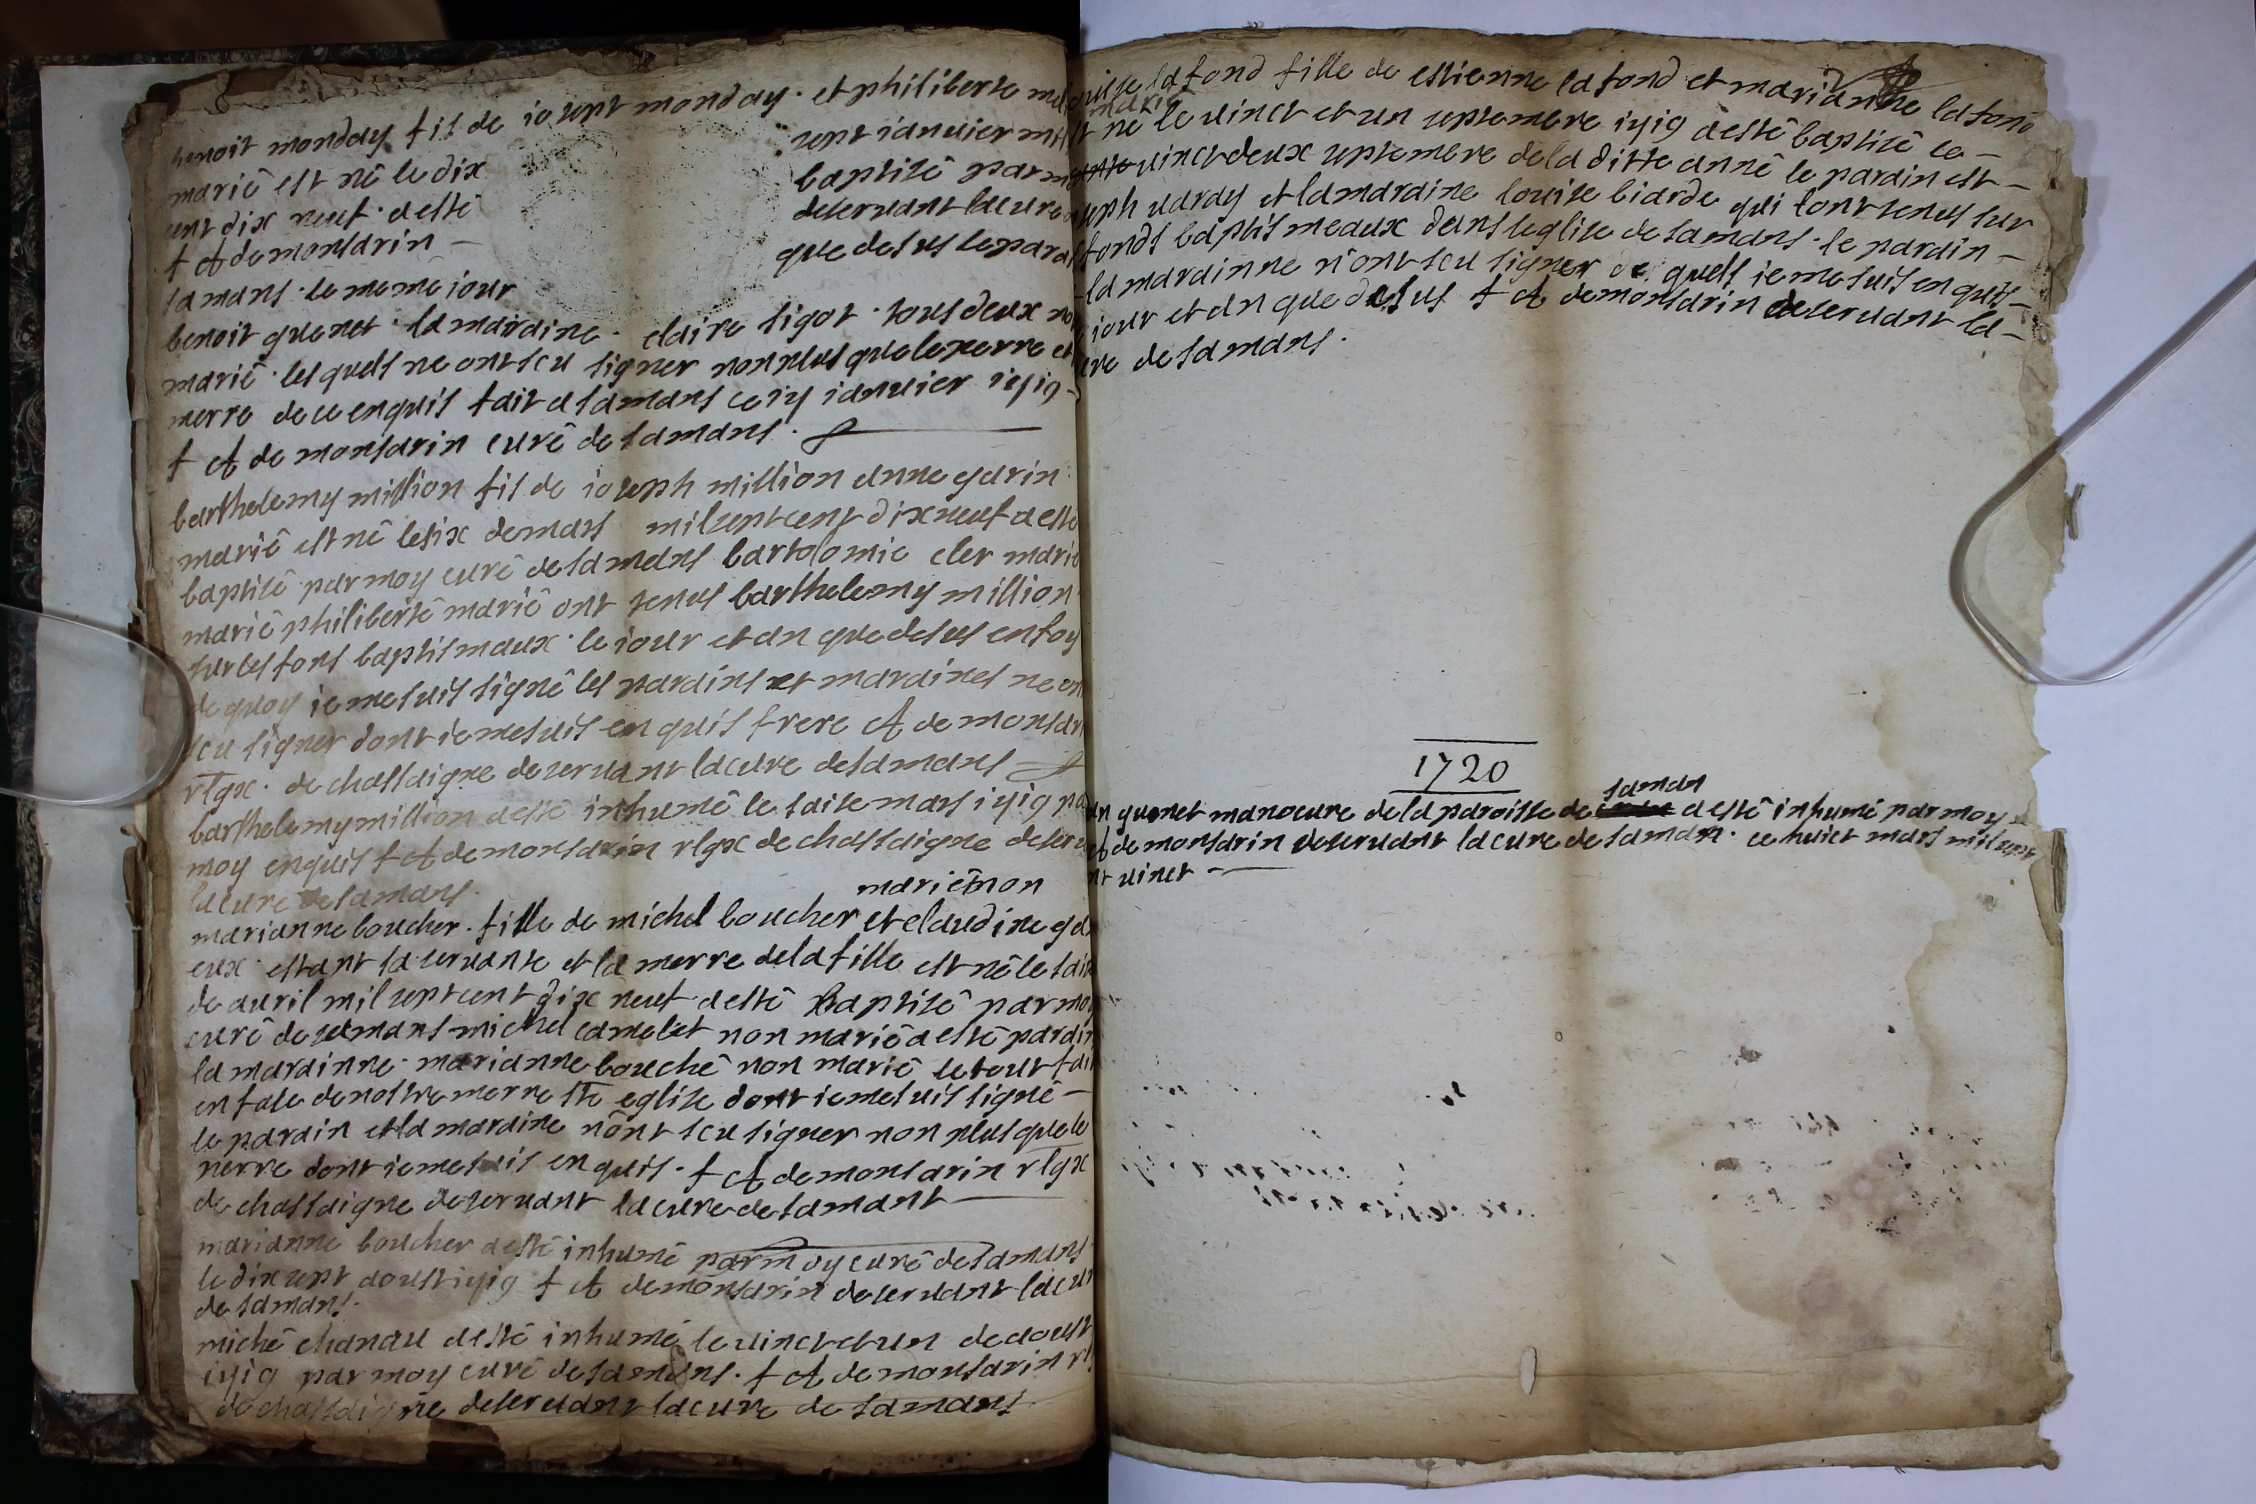 benoit monday fis de iosept monday · et philiberte
marié est né le dix sept ianuier mil
cent dix neuf · a esté baptisé par
f A de monsarin – deseruant la cure
samans · le meme iour que desus le parai
benoit quenet · la maraine · claire sigot · tous deux
marié · les quels ne ont sceu signer non plus que le perre et
merre de ce enquis fait a samans ce iy ianuier iyig –
f A de monsarin curé de samans ·
barthelemy million fis de ioseph million anne garin
marié est né le six de mars mil sept cent dix neuf a esté
baptisé par moy curé de samans bartolomie cler marié
marié philiberte marié ont tenus barthelemy million
sur les fons baptismaux · le iour et an que desus en foy
de quoy ie me suis signé les parains et maraines ne on
sceu signer dont ie me suis enquis frere A de monsarin
rlgx · de chassaigne deseruant la cure de samans
barthelemy million a esté inhumé le saise mars iyig par
moy enquis f A de monsarin rlgx de chassaigne deseru
la cure de samans ·
marié non
marianne boucher · fille de michel boucher et claudine
eux · estant sa seruante et la merre de la fille est né le sais
de auril mil sept cent dix neuf · a esté baptisé par moy
curé de samans michel camelet non marié a esté parain
la marainne · marianne bouché non marié le tout fait
en fase de nostre merre ste eglise dont ie me suis signé –
le parain et la maraine nont sceu signer non plus que le
perre dont ie me suis enquis · f A de monsarin rlgx
de chassaigne deseruant la cure de samant
marianne boucher a esté inhumé par moy curé de samans
le dix sept aoust iyig f A de monsarin deseruant la cur
de samans ·
miché chanau a esté inhumé le uinct et un de aoust
iyig par moy curé de samans · f A de monsarin
de chassaigne deseruant la cure de samans
lafond fille de estienne lafond et marianne lafond
marié
né le uinct et un septembre iyig a esté baptisé ce –
uinct deux septembre de la ditte anné le parain est –
seph uaray et la maraine louise biarde qui lont tenus sur
fonds baptismeaux dans leglise de samans · le parain –
la marainne n'ont sceu signer de quels ie me suis enquis –
iour et an que desus f A de monsarin deseruant la –
ure de samans ·
1720
saman
quenet manoeure de la paroisse de a esté inhumé par moy
A de monsarin deseruant la cure de saman · ce huict mars mil sept
nt uinct –